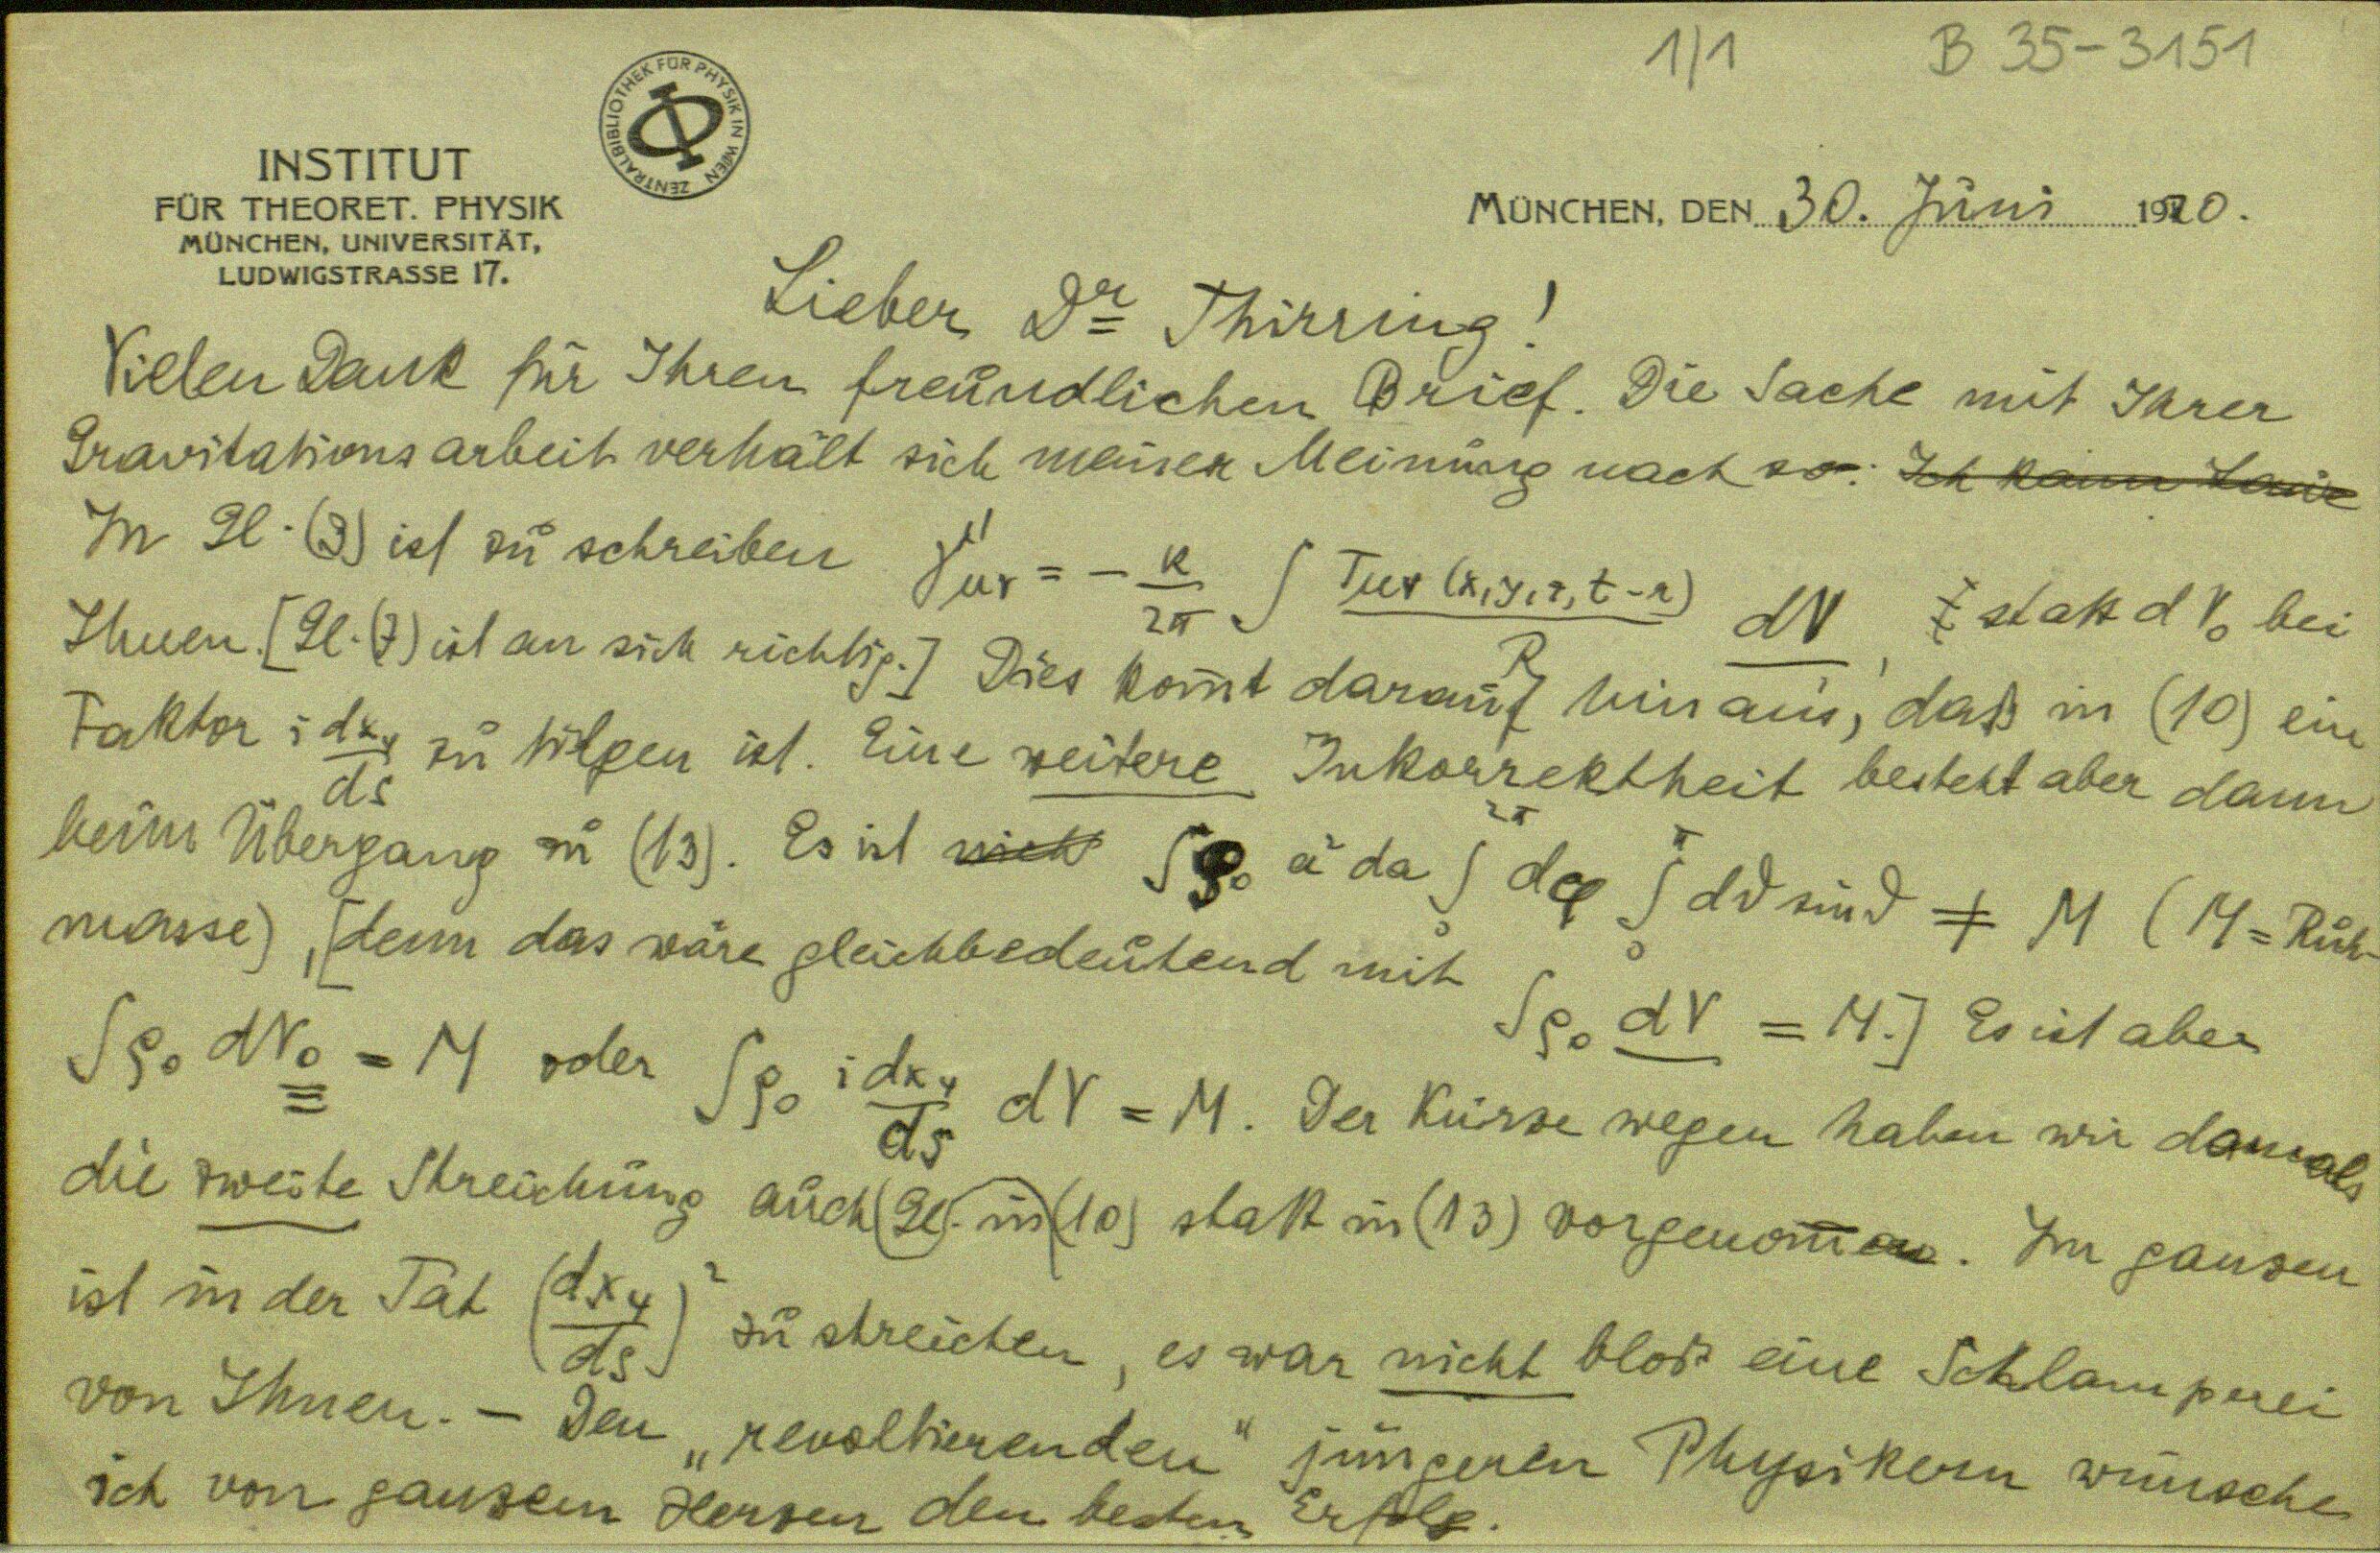 1/1 B 35-3151
ZENTRALBIBLIOTHEK FÜR PHYSIK IN WIEN
INSTITUT
FÜR THEORET. PHYSIK
MÜNCHEN, UNIVERSITÄT,
LUDWIGSTRASSE 17.
MÜNCHEN, DEN 30. Juni 1920.
Lieber Dr Thirring!
Vielen Dank für Ihren freundlichen Brief. Die Sache mit Ihrer
Gravitationsarbeit verhält sich meiner Meinung nach so: Ich kann
In Gl. (3) ist zu schreiben γ'μν = - k/2π ∫ Tμν (x, y, z, t - r)/R dV, statt dV₀ bei
Ihnen. [Gl. (7) ist an sich richtig.] Dies kom̄t darauf hinaus, daß in (10) ein
Faktor i dx₄/ds zu tilgen ist. Eine weitere Inkorrektheit besteht aber dann
beim Übergang zu (13). Es ist nicht ∫ρ₀ a² da ∫₀^2π dφ ∫₀^π dϑ sinϑ ≠ M (M = Ruh-
masse), [denn das wäre gleichbedeutend mit ∫ρ₀ dV = M.] Es ist aber
∫ρ₀ dV₀ = M oder ∫ρ₀ i dx₄/ds dV = M. Der Kürze wegen haben wir damals
die zweite Streichung auch (Gl. in (10) statt in (13) vorgenom̄en. Im ganzen
ist in der Tat (dx₄/ds)² zu streichen, es war nicht bloß eine Schlamperei
von Ihnen. – Den „revoltierenden" jüngeren Physikern wünsche
ich von ganzem Herzen den besten Erfolg.